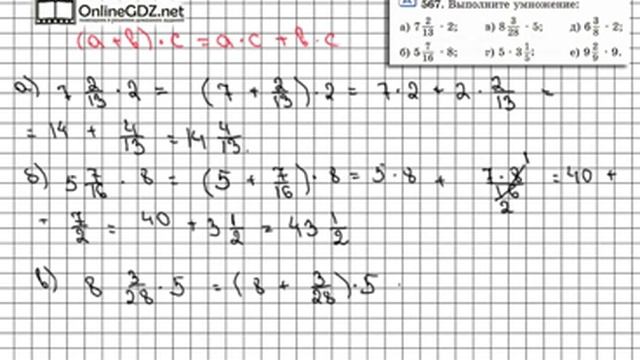 OnlineGDZ.net
567. Выполните умножение:
а) 7 2/13 · 2; в) 8 3/28 · 5; д) 6 3/8 · 2;
б) 5 7/16 · 8; г) 5 · 3 1/5; е) 9 2/9 · 9.
(a + b) · c = a · c + b · c
а) 7 2/13 · 2 = (7 + 2/13) · 2 = 7 · 2 + 2 · 2/13 =
= 14 + 4/13 = 14 4/13.
б) 5 7/16 · 8 = (5 + 7/16) · 8 = 5 · 8 + 7 · 8 1/16 2 = 40 +
+ 7/2 = 40 + 3 1/2 = 43 1/2
в) 8 3/28 · 5 = (8 + 3/28) · 5